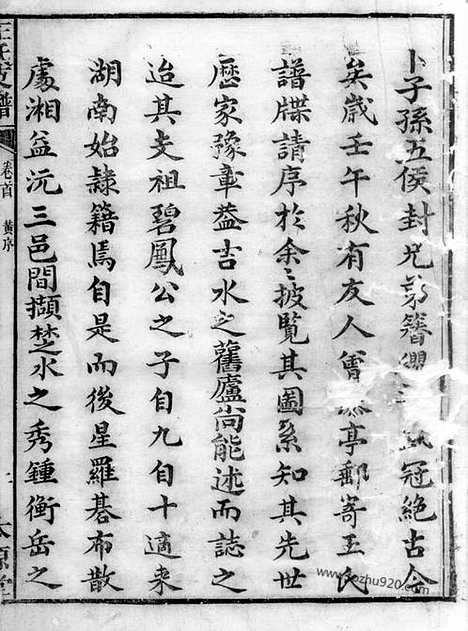 卜子孫五侯封兄弟簪纓冠絕古今
矣歲壬午秋有友人曾亭郵寄王氏
譜牒請序於余〻披覽其圖系知其先世
歷家豫章葢吉水之舊廬尚能述而誌之
迨其支祖碧鳳公之子自九自十適來
湖南始隸籍焉自是而後星羅碁布散
處湘益沅三邑間擷楚水之秀鍾衡岳之
王氏支譜
卷首 黃序
太原堂